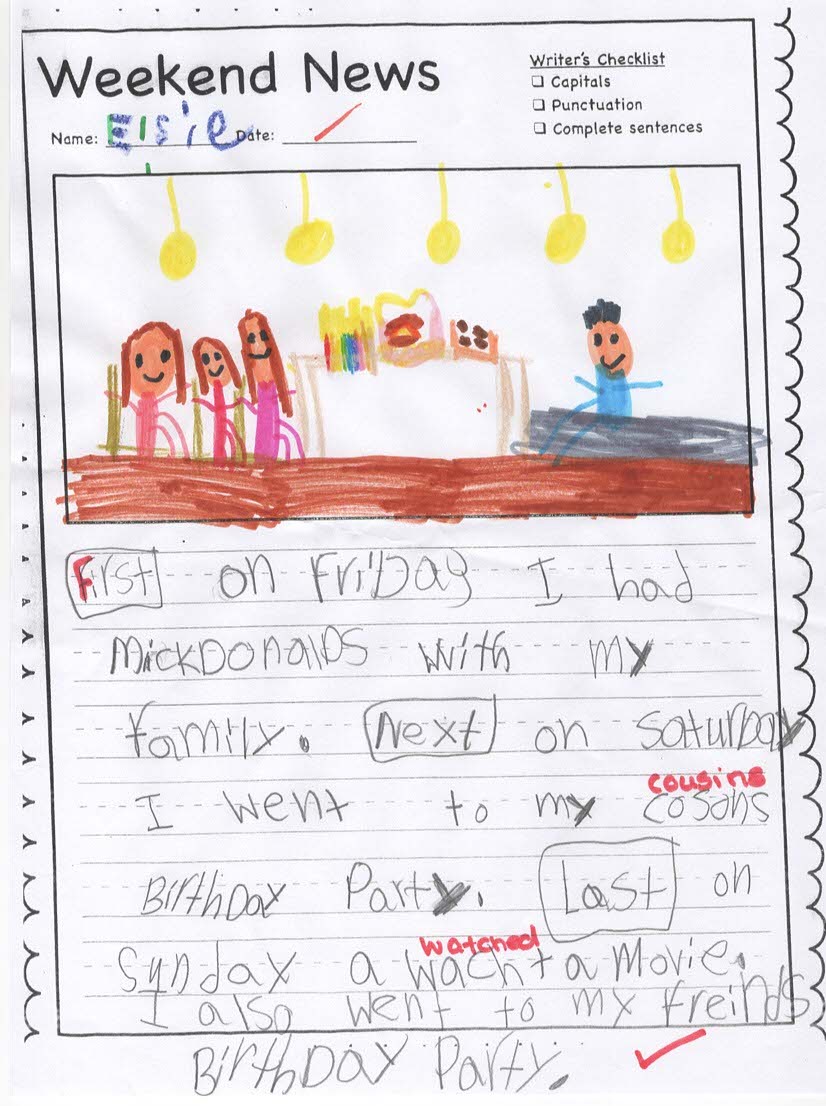 Weekend News
Writer's Checklist
❑ Capitals
❑ Punctuation
❑ Complete sentences
Name: Elsie Date:
First on FriDay I had
MickDonalDs with my
family. Next on SaturDay
cousins
I went to my cosans
BirthDay Party. Last on
watched
Synday a wacht a Movie.
I also went to my freinds
BirthDay Party.